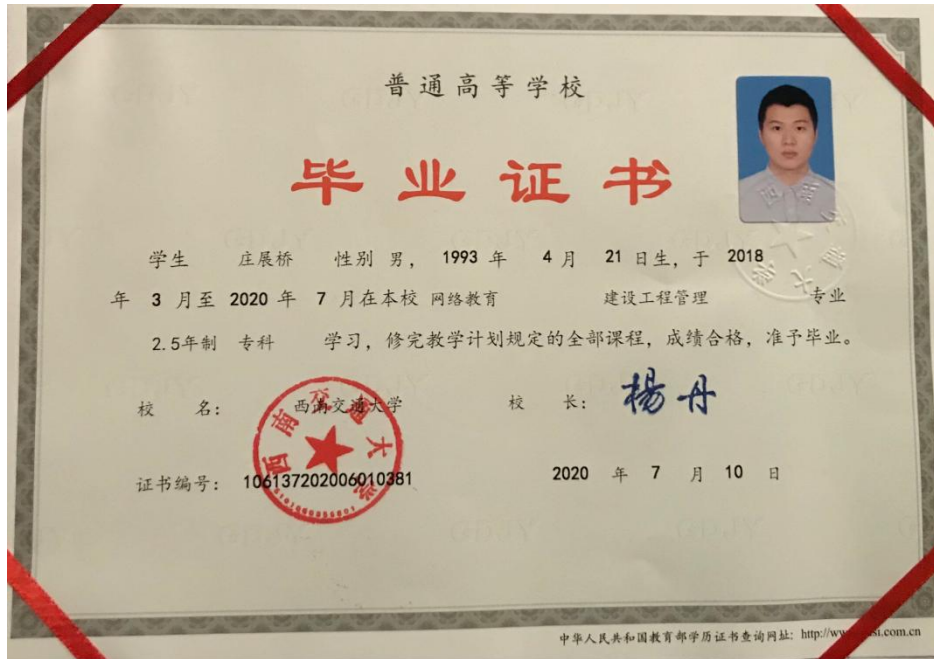 普通高等学校
毕业证书
学生 庄展桥 性别 男， 1993 年 4 月 21 日生，于 2018
年 3 月至 2020 年 7 月在本校 网络教育 建设工程管理 专业
2.5年制 专科 学习，修完教学计划规定的全部课程，成绩合格，准予毕业。
校 名： 西南交通大学 校 长： 楊丹
西南交通大学
证书编号： 106137202006010381 2020 年 7 月 10 日
中华人民共和国教育部学历证书查询网址: http://ww si.com.cn